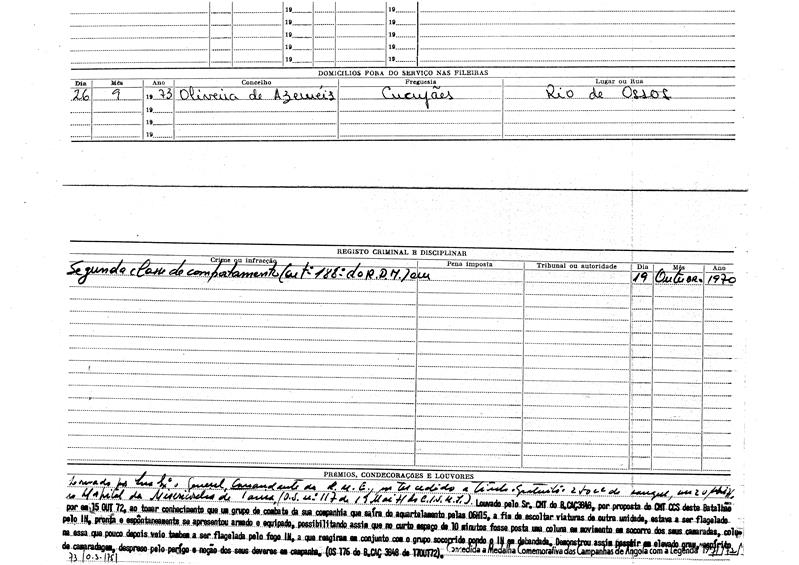 19
19
19
19
DOMICILIOS FORA DO SERVIÇO NAS FILEIRAS
Dia Mês Ano Concelho Freguesia Lugar ou Rua
26 9 1973 Oliveira de Azeméis Cucujães Rio de Ossos
19
19
19
REGISTO CRIMINAL E DISCIPLINAR
Crime ou infracção Pena imposta Tribunal ou autoridade Dia Mês Ano
Segunda classe de comportamento (artº 188º do R.D.M.) em 19 Outubro 1970
PRÉMIOS, CONDECORAÇÕES E LOUVORES
Louvado por General Comandante da R.M. ter cedido a título gratuito de sangue,
Hospital da Misericórdia de (O.S. nº 117 de Louvado pelo Sr. CMT do B.CAÇ3848, por proposta do CMT CCS deste Batalhão
por em 15 OUT 72, ao tomar conhecimento que um grupo de combate da sua companhia que saíra do aquartelamento pelas 06H15, a fim de escoltar viaturas de outra unidade, estava a ser flagelado
pelo IN, pronta e espontâneamente se apresentou armado e equipado, possibilitando assim que no curto espaço de 10 minutos fosse posta uma coluna em movimento em socorro dos seus camaradas, colu
na essa que pouco depois veio também a ser flagelada pelo fogo IN, a que reagiram em conjunto com o grupo socorrido pondo o IN em debandada. Demonstrou assim possuir em elevado grau, espírito
de camaradagem, desprezo pelo perigo e noção dos seus deveres em campanha. (OS 176 do B.CAÇ 3848 de 17OUT72). Concedida a Medalha Comemorativa das Campanhas de Angola com a Legenda 1971/72/
73 (O.S.